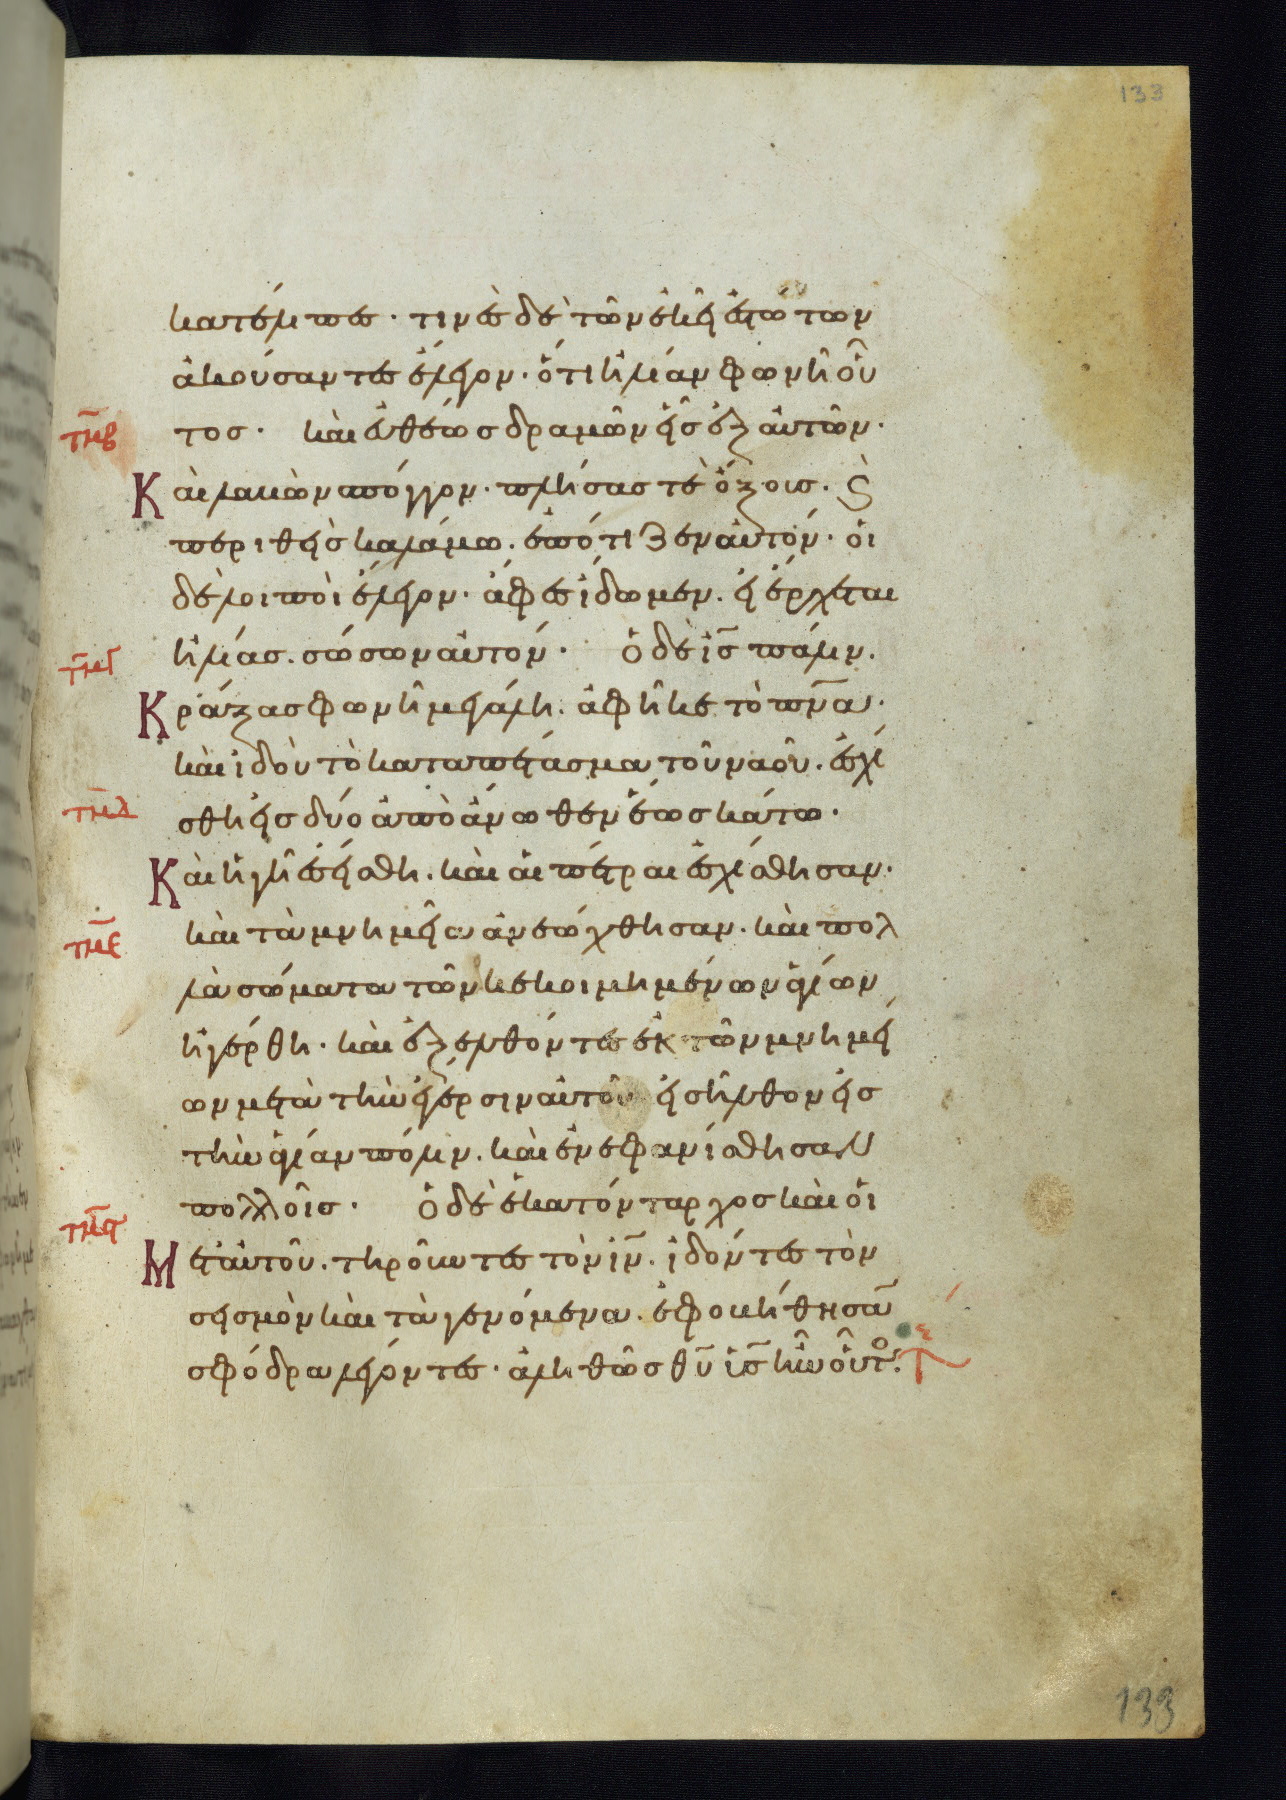 133
κατέλιπες· τινὲς δὲ τῶν ἐκεῖ ἑστώτων
ἀκούσαντες ἔλεγον· ὅτι ἠλίαν φωνῇ οὗ
τμβ τος· καὶ εὐθέως δραμὼν εἷς ἐξ αὐτῶν·
Καὶ λαβὼν σπόγγον· πλήσας τὲ ὄξους· ϗ
περιθεὶς καλάμω· ἐπότιζεν αὐτόν· οἱ
δὲ λοιποὶ ἔλεγον· ἄφες ἴδωμεν· εἰ ἔρχεται
τμγ ἠλίας· σώσων αὐτόν· ὁ δὲ ις πάλιν·
Κράξας φωνῇ μεγάλη· ἀφῆκε τὸ πνα·
καὶ ἰδοὺ τὸ καταπέτασμα τοῦ ναοῦ· ἐσχί
τμδ σθη εἰς δύο ἀπὸ ἄνωθεν ἕως κάτω·
Καὶ ἡ γῆ ἐσείσθη· καὶ αἱ πέτραι ἐσχίσθησαν·
τμε καὶ τὰ μνημεῖα ἀνεώχθησαν· καὶ πολ
λὰ σώματα τῶν κεκοιμημένων ἁγίων
ἠγέρθη· καὶ ἐξελθόντες ἐκ τῶν μνημεί
ων μετὰ τὴν ἔγερσιν αὐτοῦ εἰσῆλθον εἰς
τὴν ἁγίαν πόλιν· καὶ ἐνεφανίσθησαν
τμς πολλοῖς· ὁ δὲ ἑκατόνταρχος καὶ οἱ
Μετ αὐτοῦ· τηροῦντες τὸν ιν· ἰδόντες τὸν
σεισμὸν καὶ τὰ γενόμενα· ἐφοβήθησαν
σφόδρα λέγοντες· ἀληθῶς θυ υς ἦν οὗτος·
133